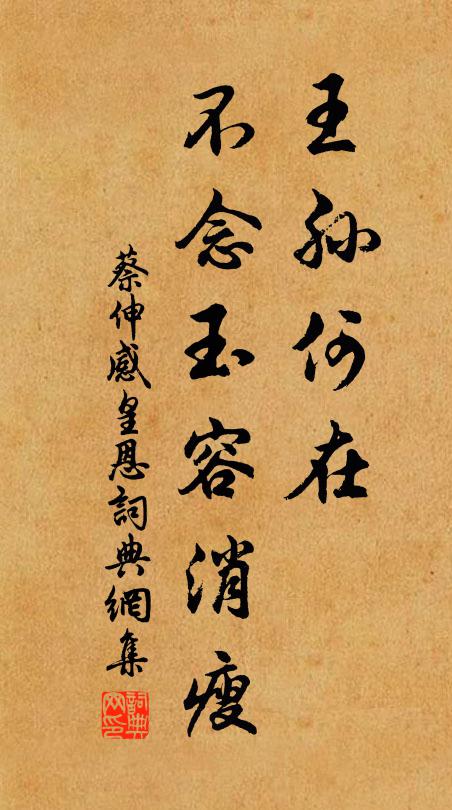 王孫何在
不念玉容消瘦
蔡伸感皇恩詞典網集
詞典網印